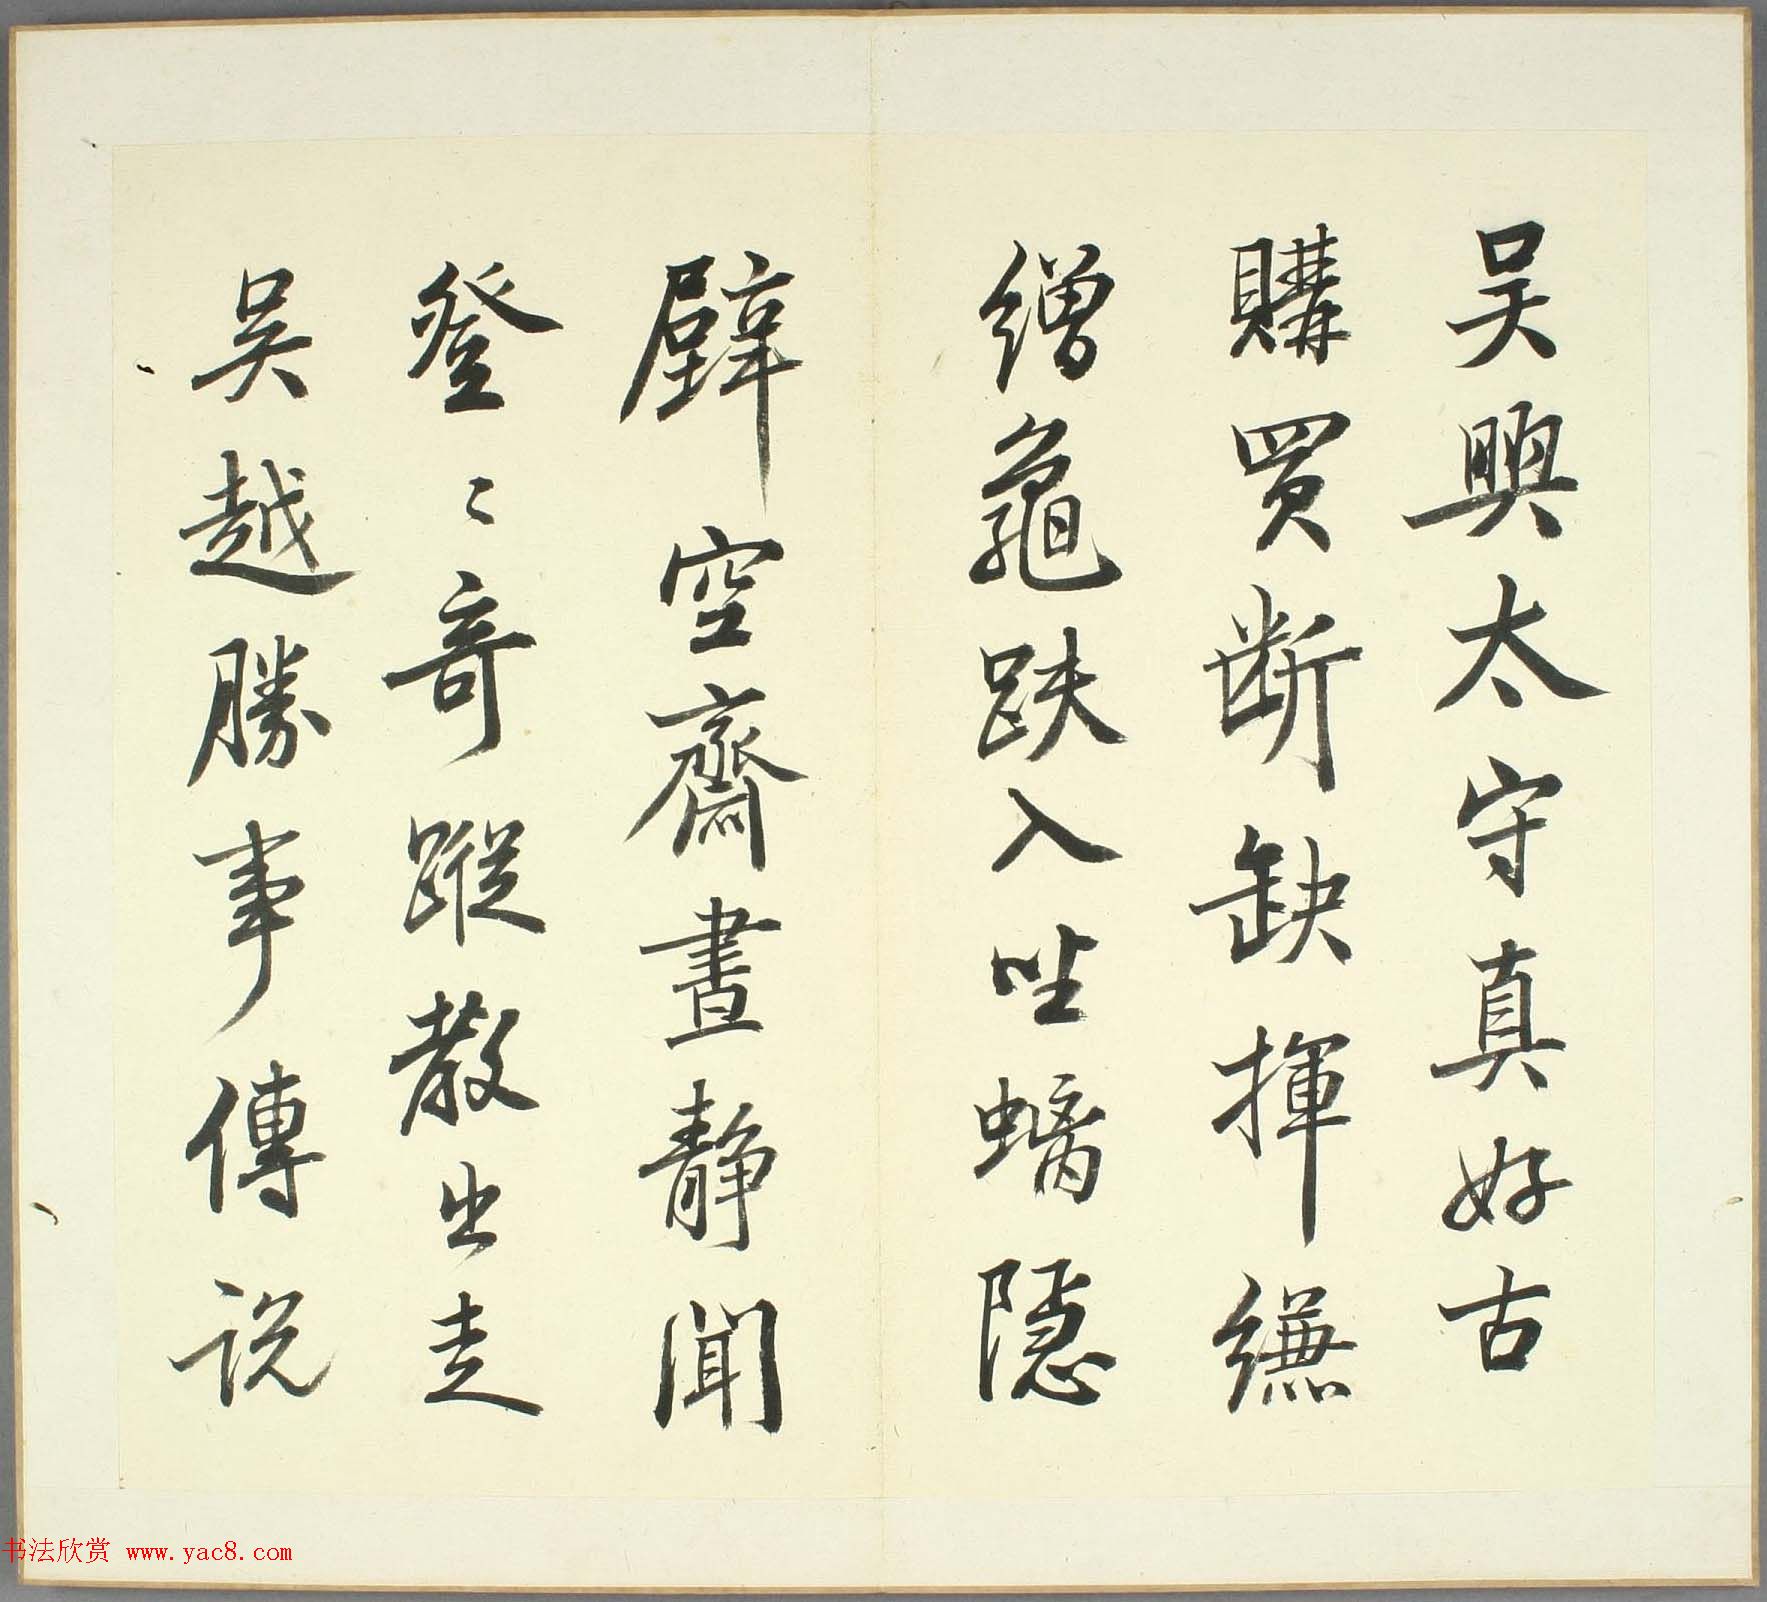 吴興太守真好古
購買斷缺揮縑
繒龜趺入坐螭隱
壁空齋晝静聞
登〻奇蹤散出走
吴越勝事傳説
书法欣赏 www.yac8.com